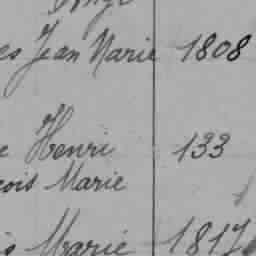 es Jean Marie 1808
e Henri 133
çois Marie
s Marie 1817